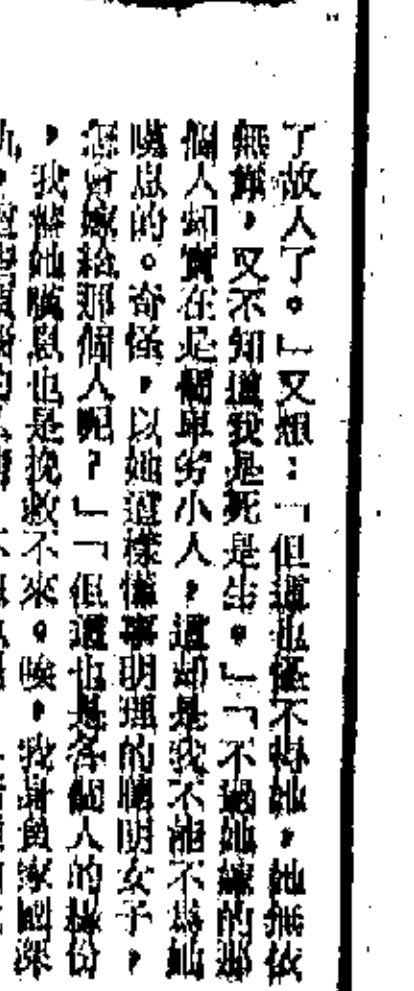 了故人了。」又想：「但這也怪不得她，她無依
無靠，又不知道我是死是生。」「不過她嫁的那
個人卻實在是個卑劣小人，這却是我不能不爲她
嘆息的。奇怪，以她這樣懂事明理的聰明女子，
怎會嫁給那個人呢？」「但這也是各個人的緣份
，我替她嘆息也是挽救不來。唉，我身負家國深